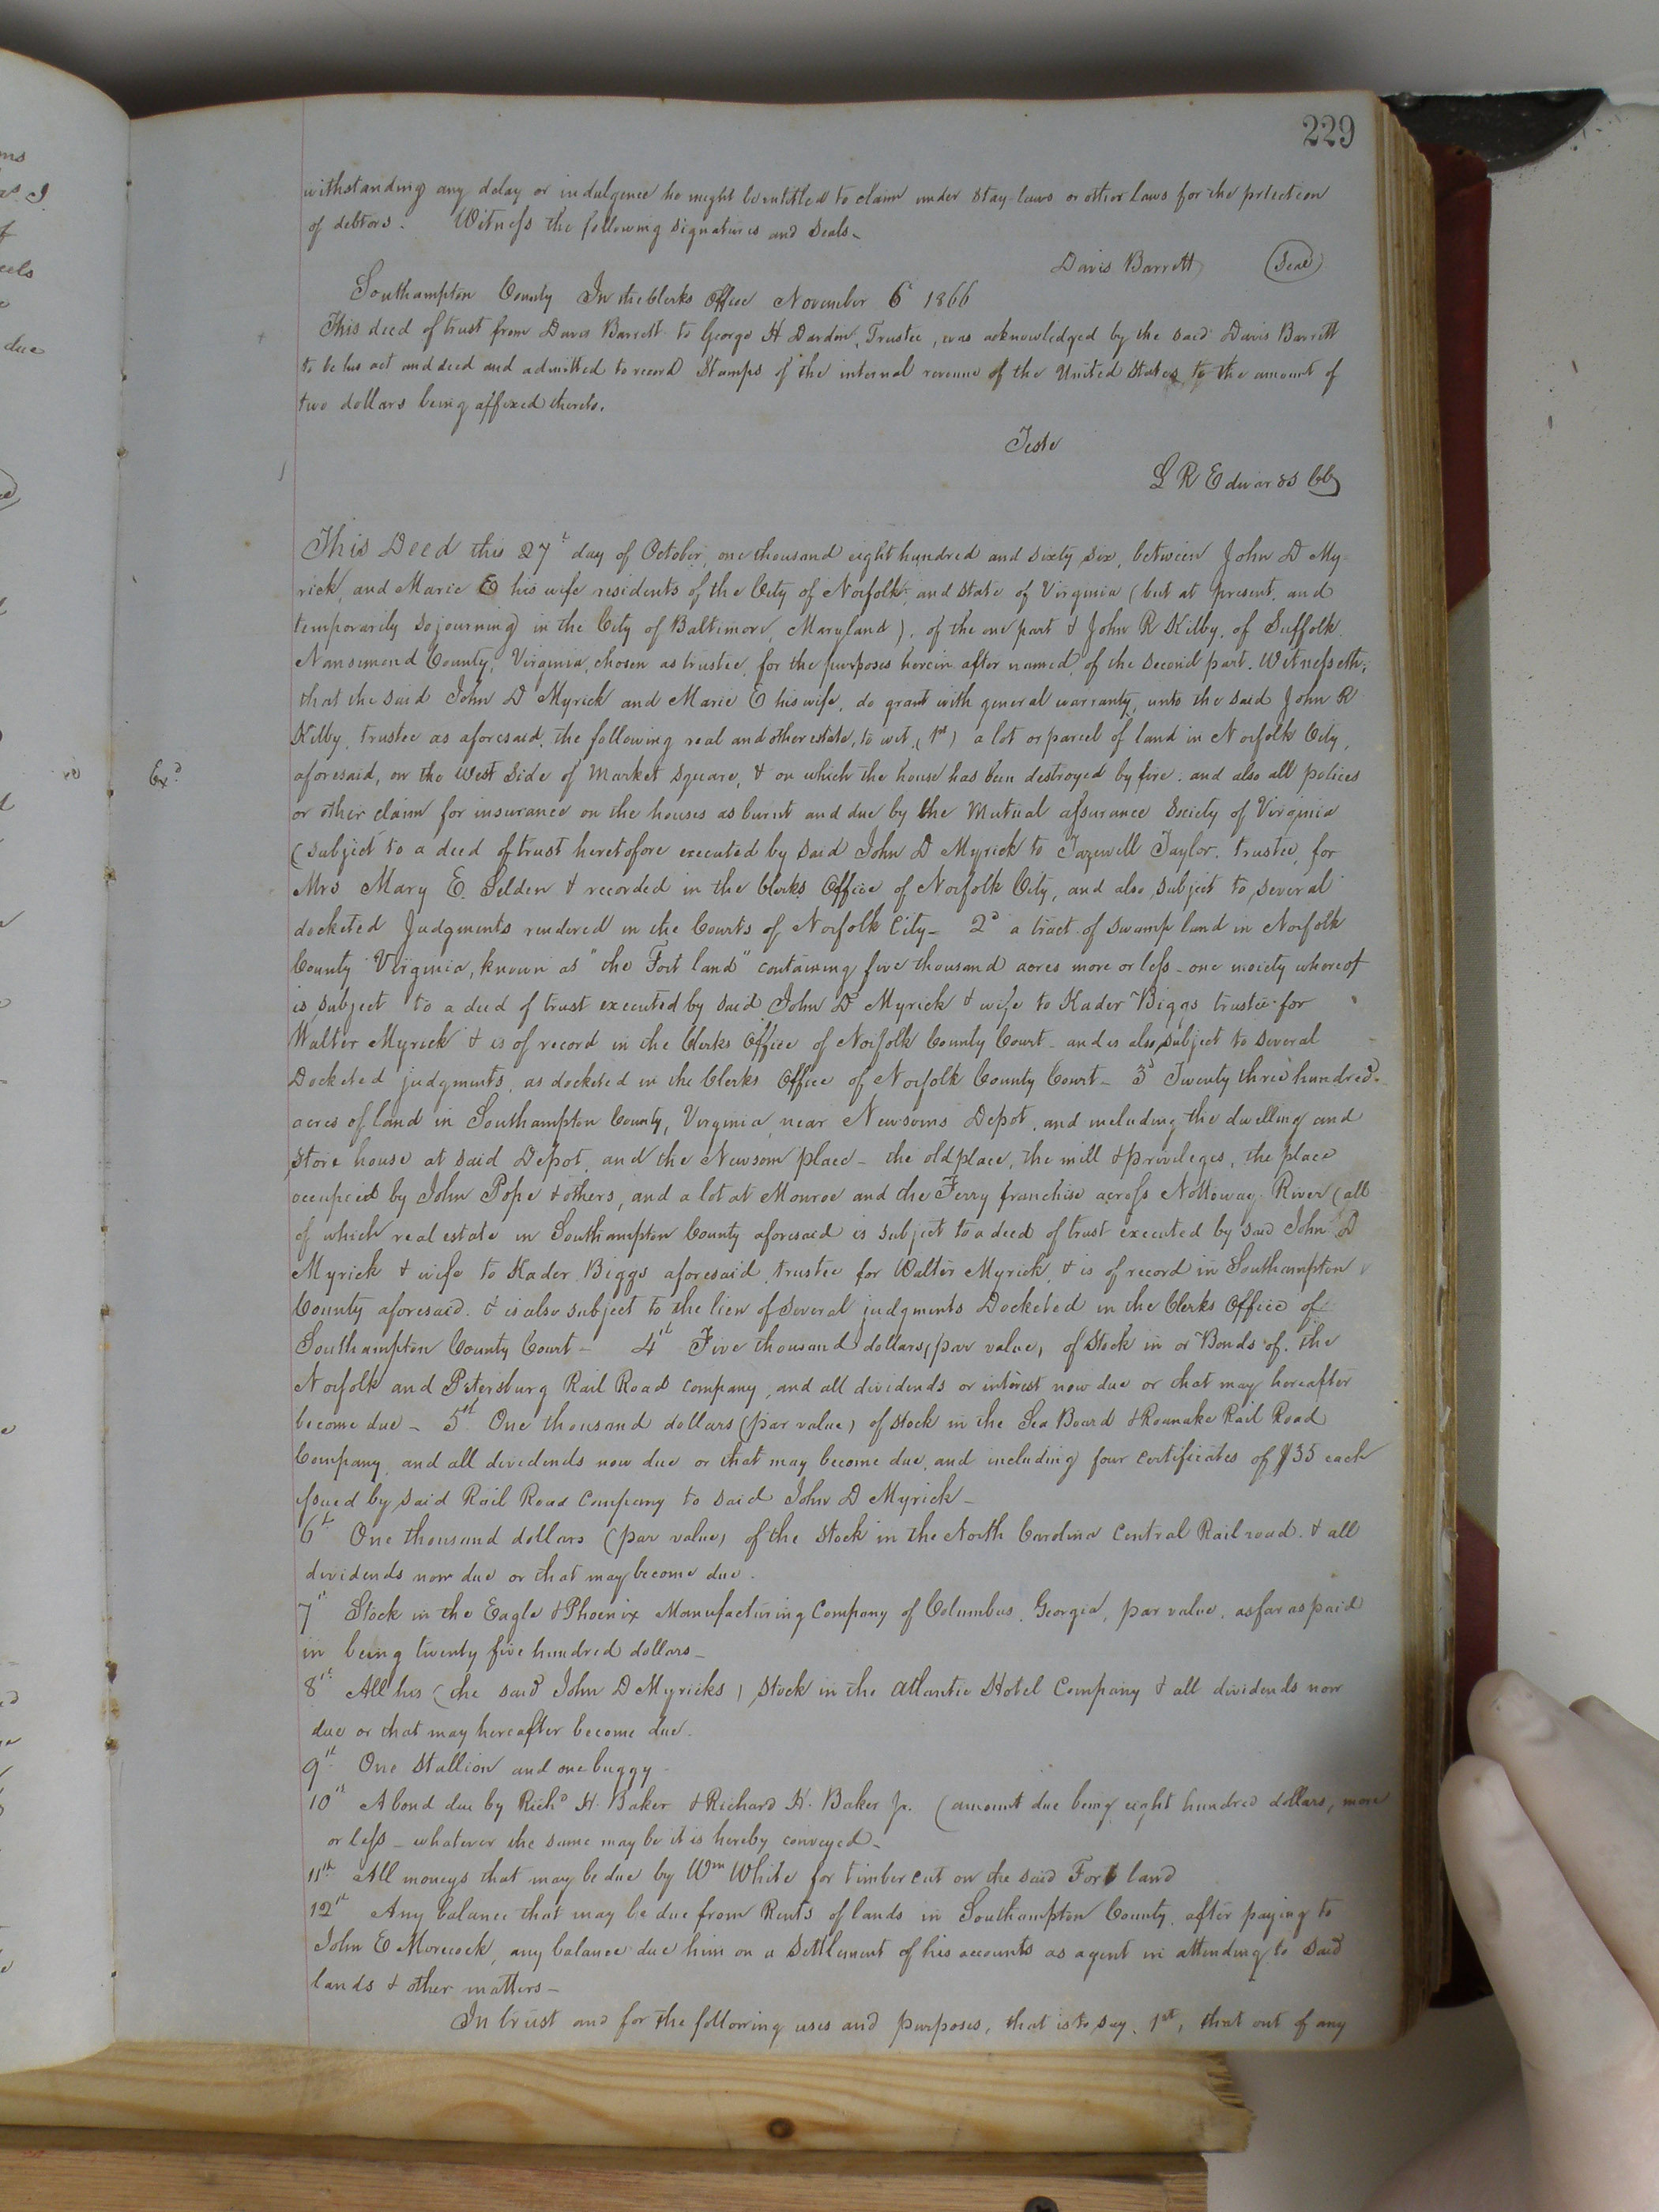 229
withstanding any delay or indulgence he might be entitled to claim under stay laws or other laws for the prtection
of debtors. Witness the following signatures and seals_
Davis Barrett (Seal)
Southampton County In the Clerks Office November 6 1866
This deed of trust from Davis Barrett to George H Darden, Trustee, was acknowledged by the said Davis Barrett
to be his act and deed and admitted to record Stamps of the internal revenue of the United States to the amount of
two dollars being affixed thereto.
Teste
L R Edwards CC
This Deed this 27th day of October, one thousand eight hundred and sixty six, between John D My-
rick, and Marie E his wife residents of the City of Norfolk, and state of Virginia (but at present, and
temporarily sojourning in the City of Baltimore, Maryland), of the one part & John R Kilby, of Suffolk,
Nansemond County, Virginia, chosen as trustee, for the purposes herein after named, of the second part. Witnesseth:
that the said John D Myrick and Marie E his wife, do grant with general warranty, unto the said John R
Kilby, trustee as aforesaid, the following real and other estate, to wit, (1st) a lot or parcel of land in Norfolk City,
Exd.
aforesaid, on the West side of Market square, & on which the house has been destroyed by fire, and also all polices
or other claim for insurance on the houses as burnt and due by the Mutual assurance Society of Virginia
(subject to a deed of trust heretofore executed by said John D Myrick to Tazewell Taylor, trustee, for
Mrs Mary E. Selden & recorded in the Clerks Office of Norfolk City, and also subject to several
docketed Judgments rendered in the Courts of Norfolk City_ 2d a tract of swamp land in Norfolk
County Virginia, known as "the Fort land" containing five thousand acres more or less_ one moiety whereof
is subject to a deed of trust executed by said John D Myrick & wife to Kader Biggs trustee for
Walter Myrick & is of record in the Clerks Office of Norfolk County Court_ and is also subject to several
Docketed judgments, as docketed in the Clerks Office of Norfolk County Court_ 3d Twenty three hundred
acres of land in Southampton County, Virginia, near Newsoms Depot, and including the dwelling and
store house at said Depot, and the Newsom place_ the old place, the mill & privileges, the place
occupied by John Pope & others, and a lot at Monroe and the Ferry franchise across Nottoway River (all
of which real estate in Southampton County aforesaid is subject to a deed of trust executed by said John D
Myrick & wife to Kader Biggs aforesaid, trustee for Walter Myrick, & is of record in Southampton
County aforesaid. & is also subject to the lien of several judgments Docketed in the Clerks Office of
Southampton County Court_ 4th Five thousand dollars (par value, of Stock in or Bonds of the
Norfolk and Petersburg Rail Road Company, and all dividends or interest now due or that may hereafter
become due_ 5th One thousand dollars (par value) of stock in the Sea Board & Roanake Rail Road
Company, and all devidends now due or that may become due, and including four certificates of $35 each
issued by said Rail Road Company to said John D Myrick_
6th One thousand dollars (par value) of the stock in the North Carolina Central Railroad, & all
dividends now due or that may become due.
7th Stock in the Eagle & Phoenix Manufacturing Company of Columbus, Georgia, par value, as far as paid
in being twenty five hundred dollars_
8th All his (the said John D Myricks) stock in the Atlantic Hotel Company & all dividends now
due or that may hereafter become due.
9th One Stallion and one buggy
10th A bond due by Richd H. Baker & Richard H. Baker Jr. (amount due being eight hundred dollars, more
or less_ whatever the same may be it is hereby conveyed_
11th All moneys that may be due by Wm White for timber cut on the said Fort land
12th Any balance that may be due from Rents of lands in Southampton County, after paying to
John E Morecock, any balance due him on a settlement of his accounts as agent in attending to said
lands & other matters_
In trust and for the following uses and purposes, that is to say, 1st, that out of any